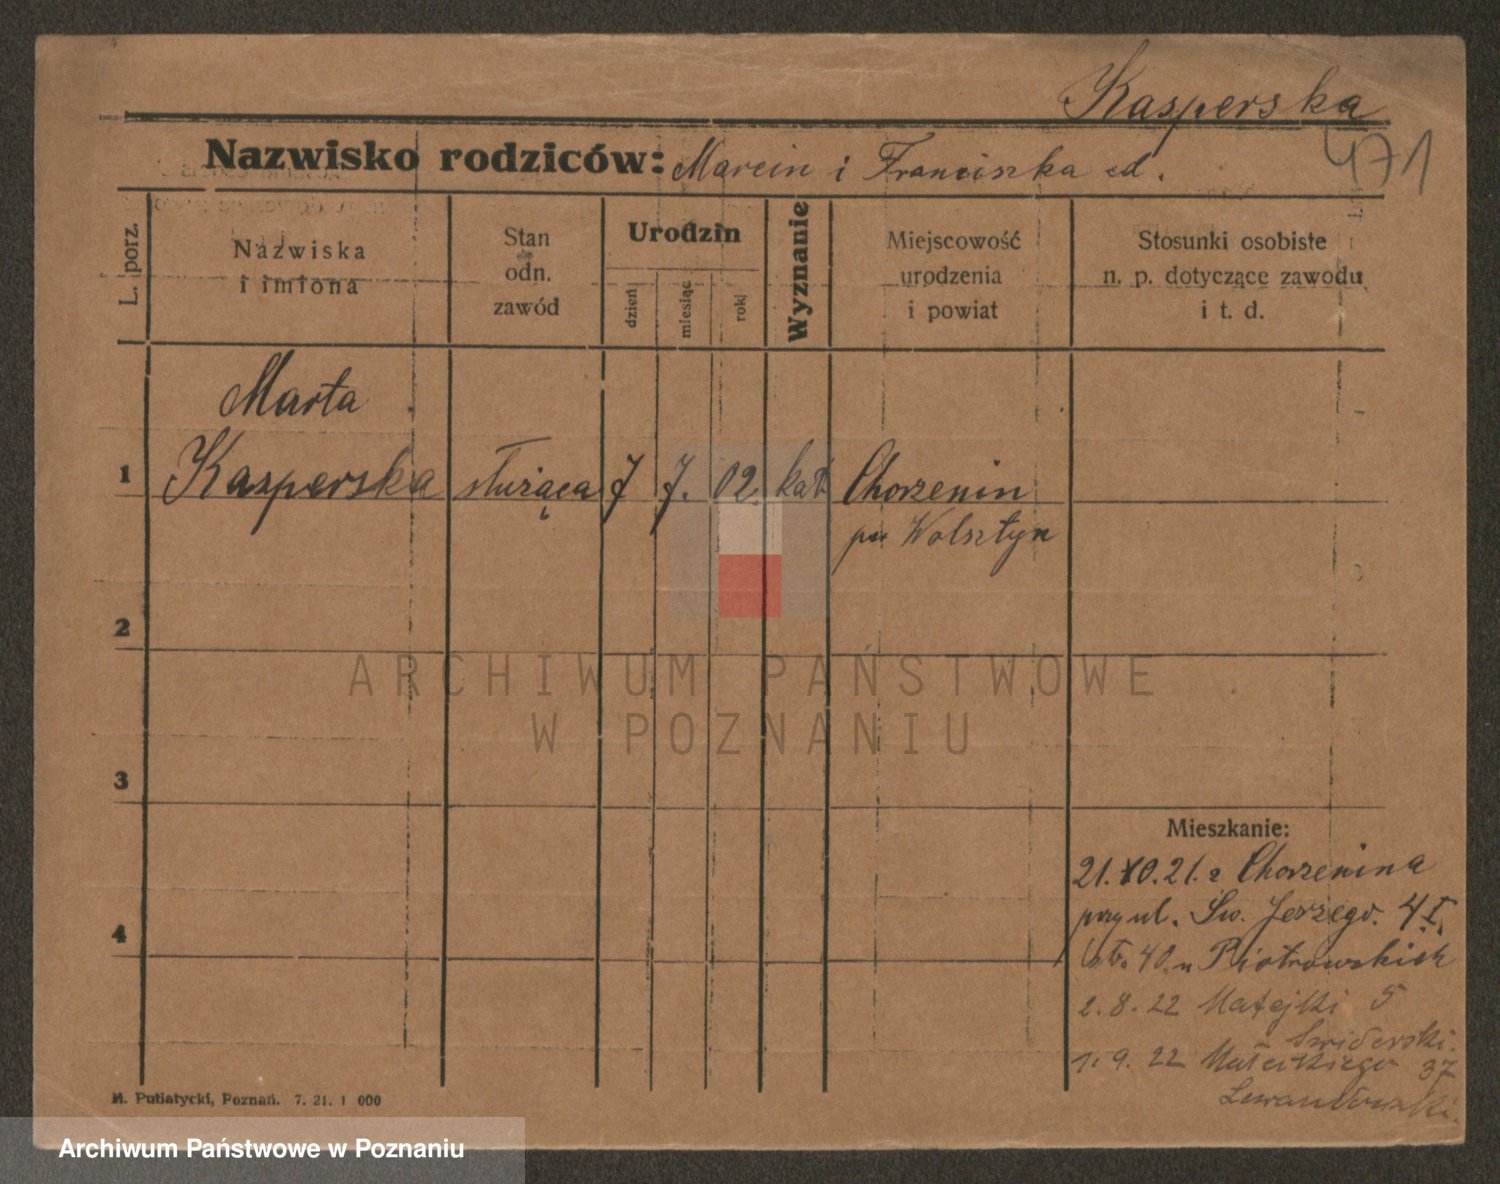 Kasperska
471
Nazwisko rodziców: Marcin i Franciszka ed.
L. porz.
Nazwiska i imiona
Stan odn. zawód
Urodzin
dzień
miesiąc
rok
Wyznanie
Miejscowość urodzenia i powiat
Stosunki osobiste n. p. dotyczące zawodu i t. d.
Marta
1 Kasperska służąca 7 7. 02. kat. Chorzenin
pow Wolsztyn
2
ARCHIWUM PAŃSTWOWE
W POZNANIU
3
Mieszkanie:
21.10.21. z Chorzenina
przy ul. Św. Jerzego. 4 I.
40. u Piotrowskich
4
2. 8. 22 Matejki 5
Świderski.
1. 9. 22 Małeckiego 37
Lewandowski.
M. Putiatycki, Poznań. 7. 21. 1 000
Archiwum Państwowe w Poznaniu